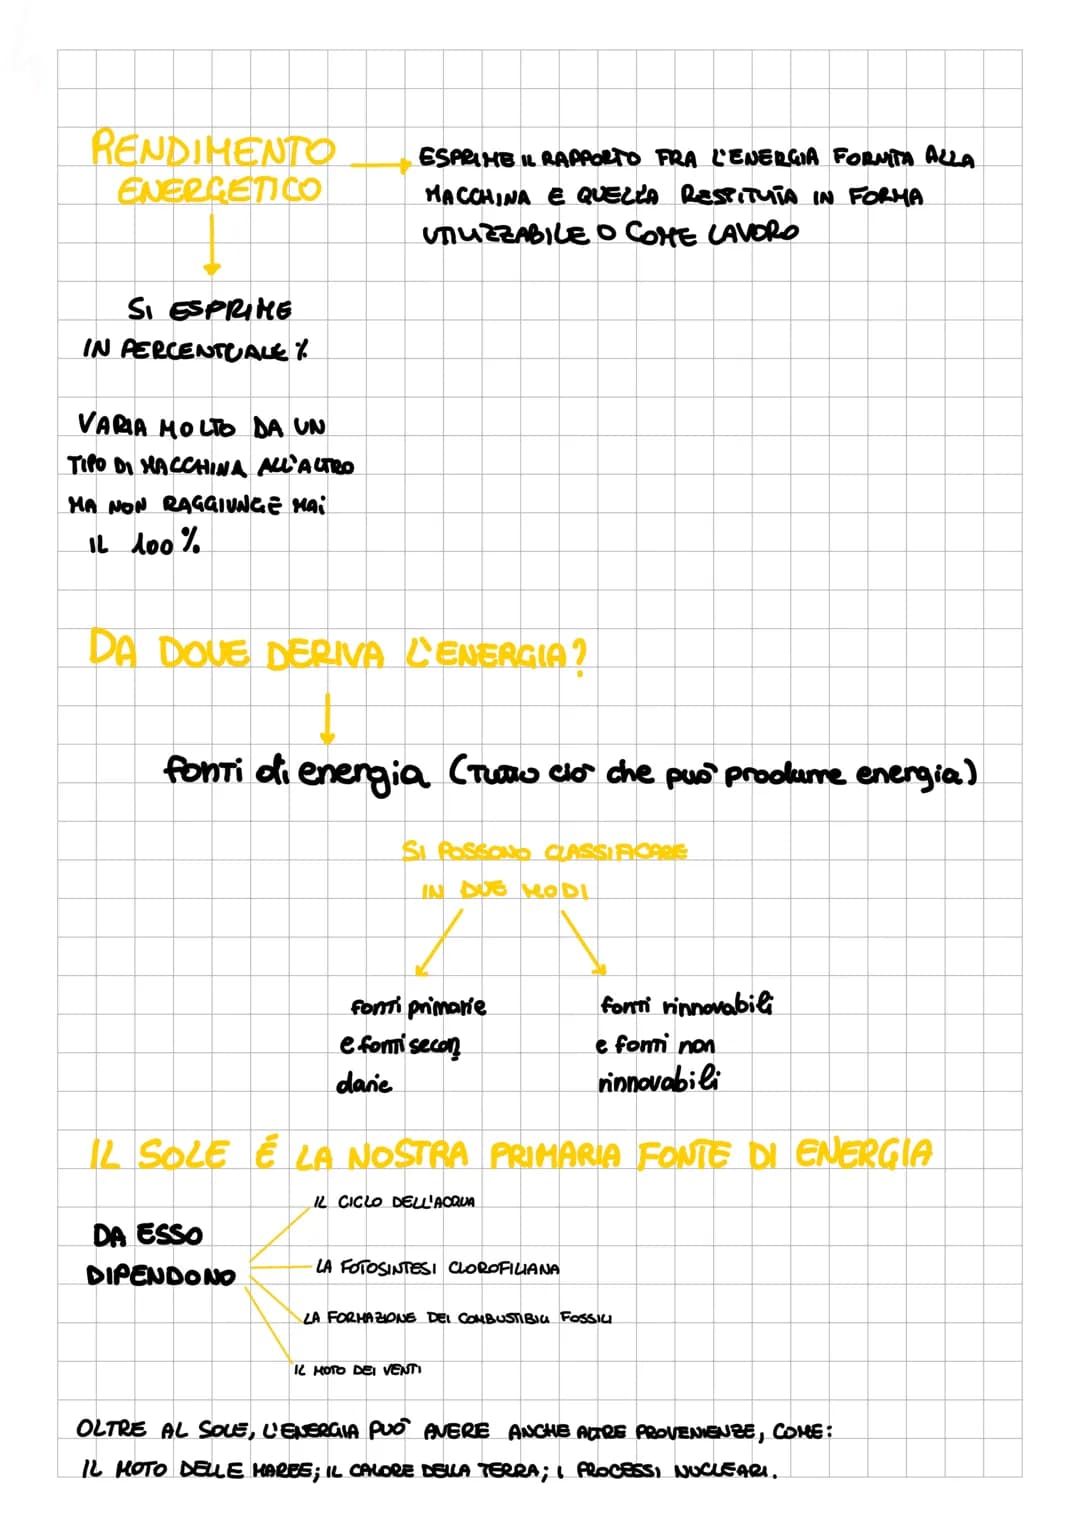 RENDIMENTO
ENERGETICO
ESPRIME IL RAPPORTO FRA L'ENERGIA FORNITA ALLA
MACCHINA E QUELLA RESTITUITA IN FORMA
UTILIZZABILE O COME LAVORO
SI ESPRIME
IN PERCENTUALE %
VARIA MOLTO DA UN
TIPO DI MACCHINA ALL'ALTRO
MA NON RAGGIUNGE MAI
IL 100%
DA DOVE DERIVA L'ENERGIA?
fonti di energia (Tutto ciò che può produrre energia)
SI POSSONO CLASSIFICARE
IN DUE MODI
fonti primarie
e fonti secon
darie
fonti rinnovabili
e fonti non
rinnovabili
IL SOLE É LA NOSTRA PRIMARIA FONTE DI ENERGIA
DA ESSO
DIPENDONO
IL CICLO DELL'ACQUA
LA FOTOSINTESI CLOROFILIANA
LA FORMAZIONE DEI COMBUSTIBILI FOSSILI
IL MOTO DEI VENTI
OLTRE AL SOLE, L'ENERGIA PUÒ AVERE ANCHE ALTRE PROVENIENZE, COME:
IL MOTO DELLE MAREE; IL CALORE DELLA TERRA; I PROCESSI NUCLEARI.